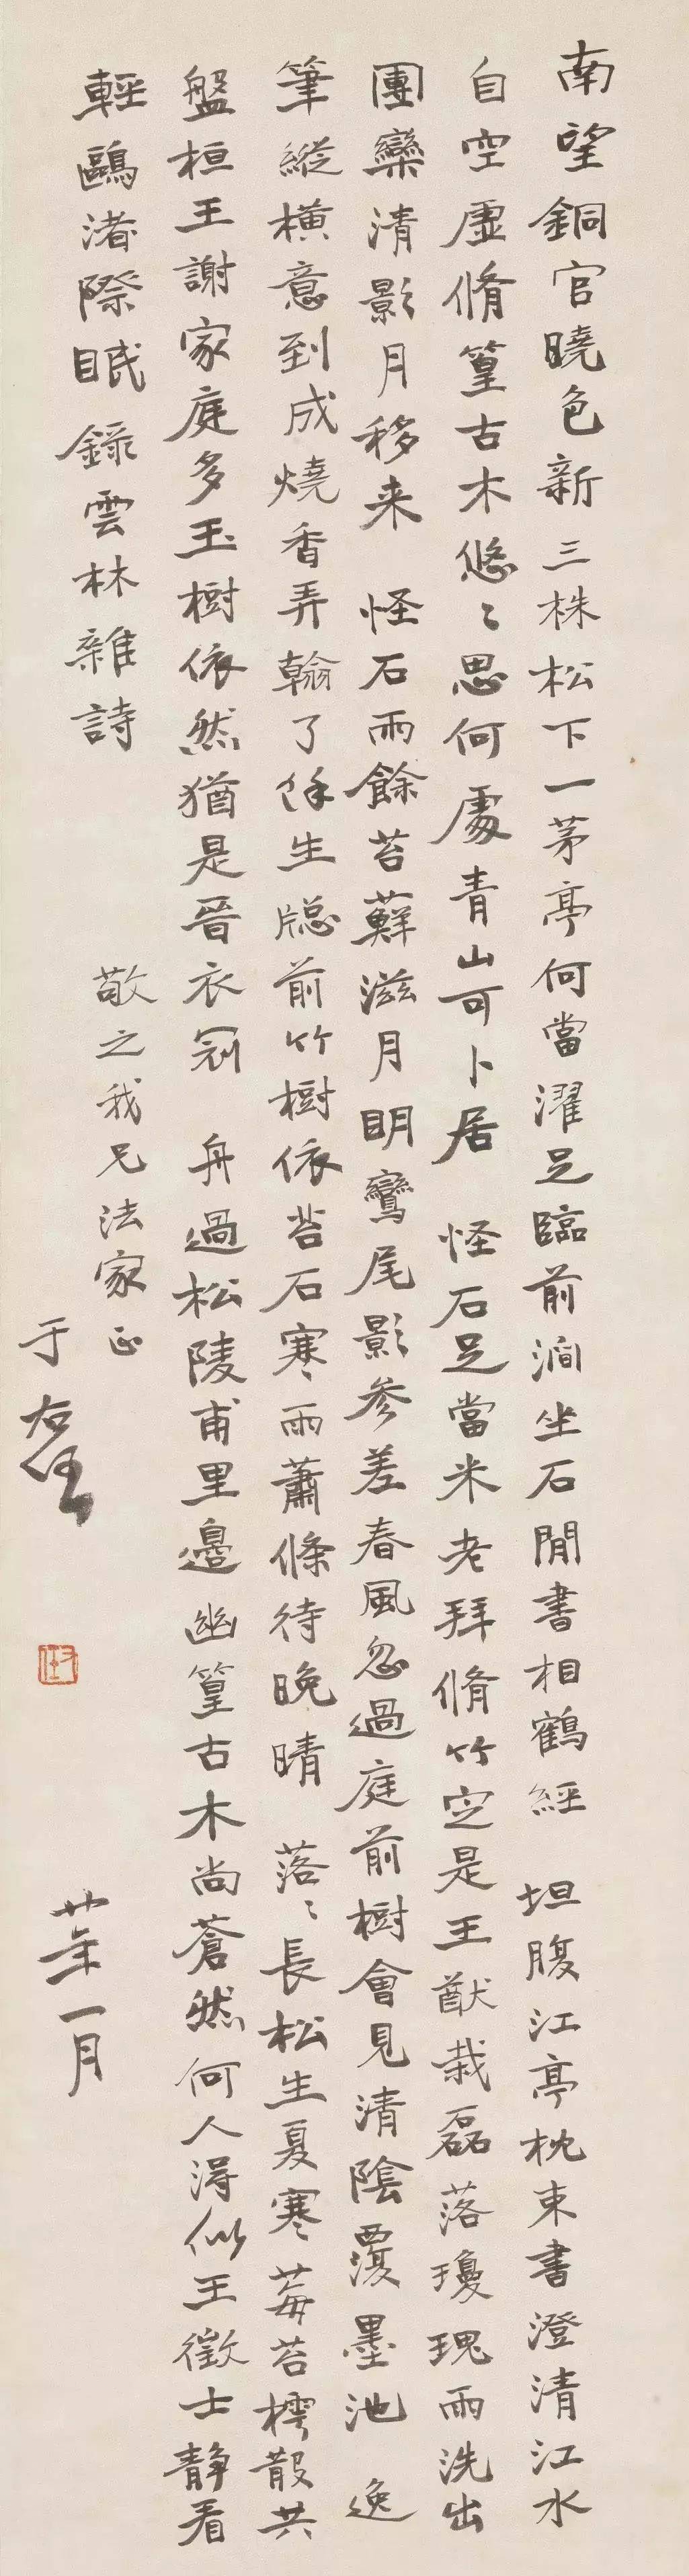 南望銅官曉色新三株松下一茅亭何當濯足臨前澗坐石閒書相鶴經 坦腹江亭枕束書澄清江水
自空虛脩篁古木悠〻思何處青山可卜居 怪石足當米老拜脩竹空是王猷栽磊落瓊瑰雨洗出
團欒清影月移来 怪石雨餘苔蘚滋月明鸞尾影參差春風忽過庭前樹會見清陰覆墨池 逸
筆縱橫意到成燒香弄翰了餘生牕前竹樹依苔石寒雨蕭條待晚晴 落〻長松生夏寒莓苔樗散共
盤桓王謝家庭多玉樹依然猶是晉衣冠 舟過松陵甫里邊幽篁古木尚蒼然何人得似王徵士靜看
輕鷗渚際眠 錄雲林雜詩
敬之我兄法家正
于右任
廿年一月